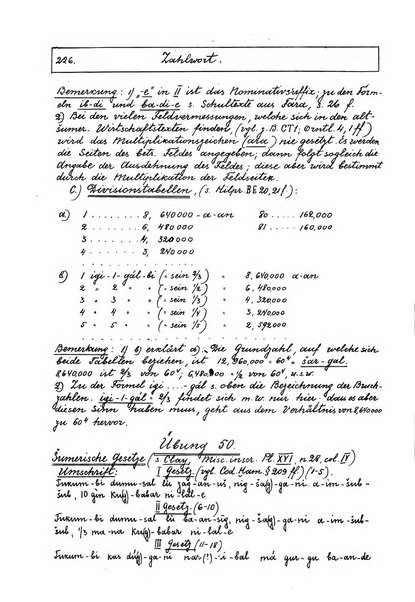 226. Zahlwort.
Bemerkung: 1) „-e" in II ist das Nominativsuffix; zu den For-
meln ib-di und ba-di-e s. Schultexte aus Fāra, S. 26 f.
2) Bei den vielen Feldvermessungen, welche sich in den alt-
šumer. Wirtschaftstexten finden, (vgl. z. B. CT 1; Orntl. 4, 1 ff)
wird das Multiplikationszeichen (ara) nie gesetzt. Es werden
die Seiten des betr. Feldes angegeben; dann folgt sogleich die
Angabe der Ausdehnung des Feldes; diese aber wird bestimmt
durch die Multiplikation der Feldseiten.
C.) Divisionstabellen, (s. Hilpr. BE 20, 21 f.):
a) 1 ........ 8, 640000 - a-an 80 ..... 162,000
2 ........ 6, 480000 81 ..... 160,000
3 ........ 4, 320000
4 ........ 3, 240000
b) 1 igi - 1 - gál - bi (= sein 2/3) = 8, 640000 a-an
2 " 2 " " (= sein 1/2) = 6, 480000
3 " 3 " " (= sein 1/3) = 4, 320000
4 " 4 " " (= sein 1/4) = 3, 240000
5 " 5 " " (= sein 1/5) = 2, 592000
Bemerkung: 1) b) erklärt a). Die Grundzahl, auf welche sich
beide Tabellen beziehen, ist 12, 960,000 = 60⁴ = šar-gal.
8640000 ist 2/3 von 60⁴; 6,480000 = 1/2 von 60⁴, u.s.w.
2) Zu der Formel igi .... gál s. oben die Bezeichnung der Bruch-
zahlen. igi-1-gál = 2/3 findet sich m. W. nur hier. dass es aber
diesen Sinn haben muss, geht aus dem Verhältnis von 8,640000
zu 60⁴ hervor.
Übung 50.
Šumerische Gesetze (s. Clay, Misc. inscr. Pl. XVI n. 28, col. IV)
Umschrift: I Gesetz (vgl. Cod. Ham. § 209 ff) (1-5).
Tukum-bi dumu-sal lù zag-an-uš, nig-ša(g)-ga-ni a-im-šub-
šub, 10 gín ku(g)-babar ni-lal-e
II Gesetz (6-10)
Tukum-bi dumu-sal lù ba-an-síg, nig-ša(g)-ga-ni a-im-šub-
šub, 1/3 ma-na ku(g)-babar ni-lal-e
III Gesetz (11-18)
Tukum-bi kas dú(g)-ga-ni nar(?)-i-bal má gur-gu ba-an-de